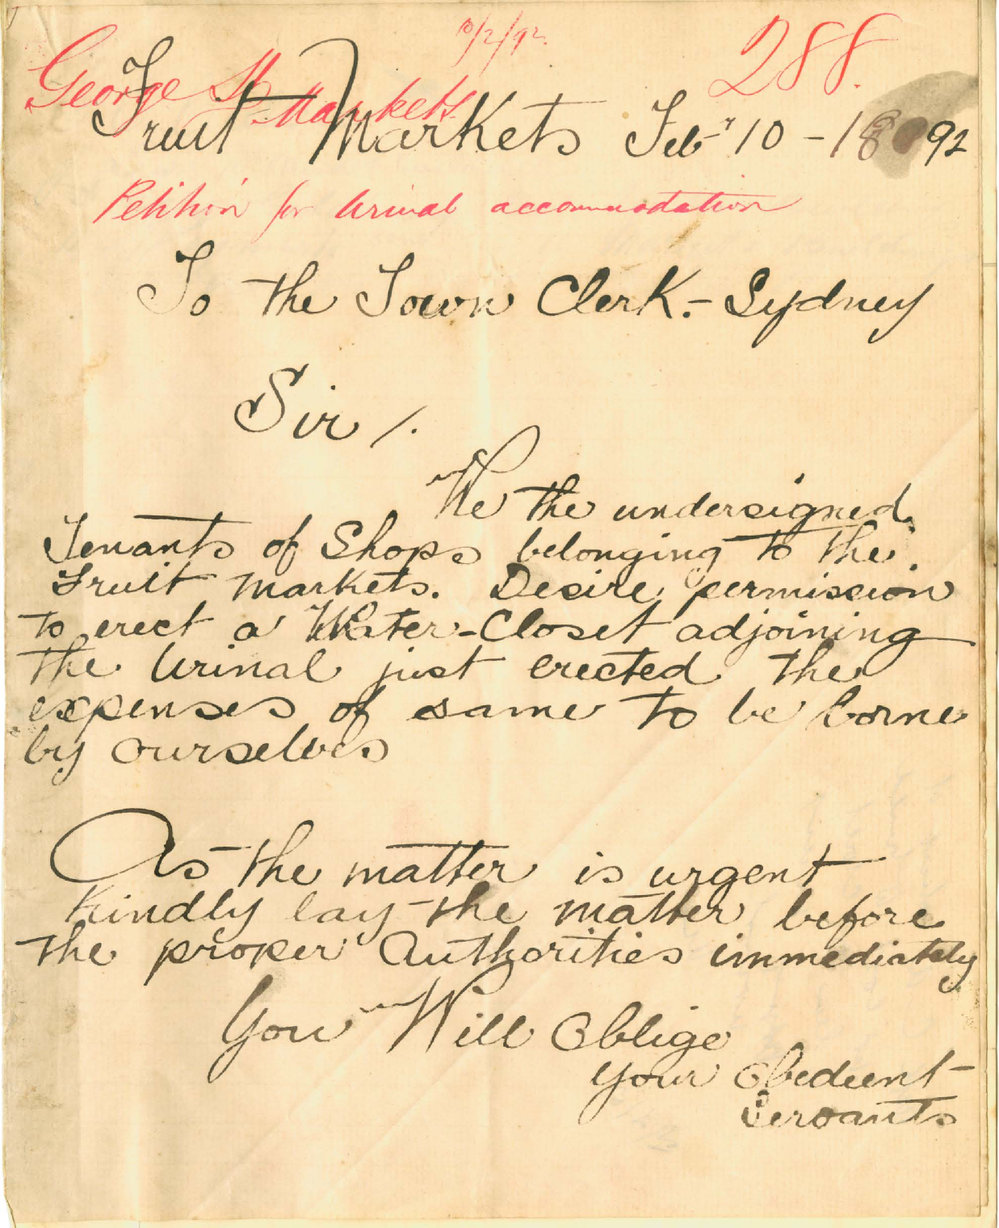 10/2/92.
288.
George St Markets
Fruit Markets Feby 10 - 1892
Petition for Urinal accommodation
To the Town Clerk. - Sydney
Sir /.
We the undersigned.
Tenants of Shops belonging to the.
Fruit Markets. Desire permission
to erect a Water-Closet adjoining
the Urinal just erected the
expenses of same to be borne
by ourselves
As the matter is urgent
Kindly lay the matter before
the proper Authorities immediately
You Will Oblige
Your Obedient
Servants